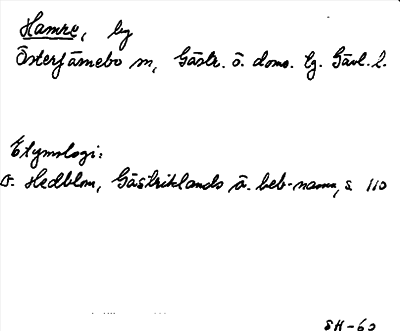 Hamre, by
Österfärnebo sn, Gästr. ö. doms. lg. Gävl. l.
Etymologi:
F. Hedblom, Gästriklands ä. beb-namn, s 110
SH-62